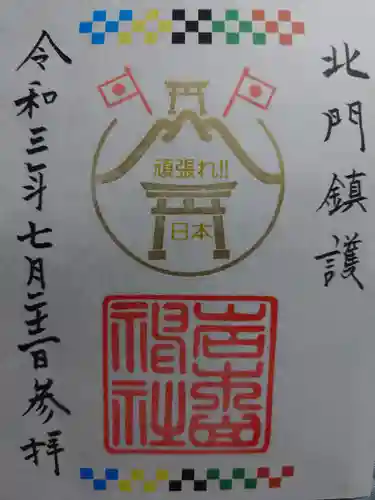 北門鎮護
頑張れ!!
日本
岩木山
神社
令和三年七月二十三日参拝